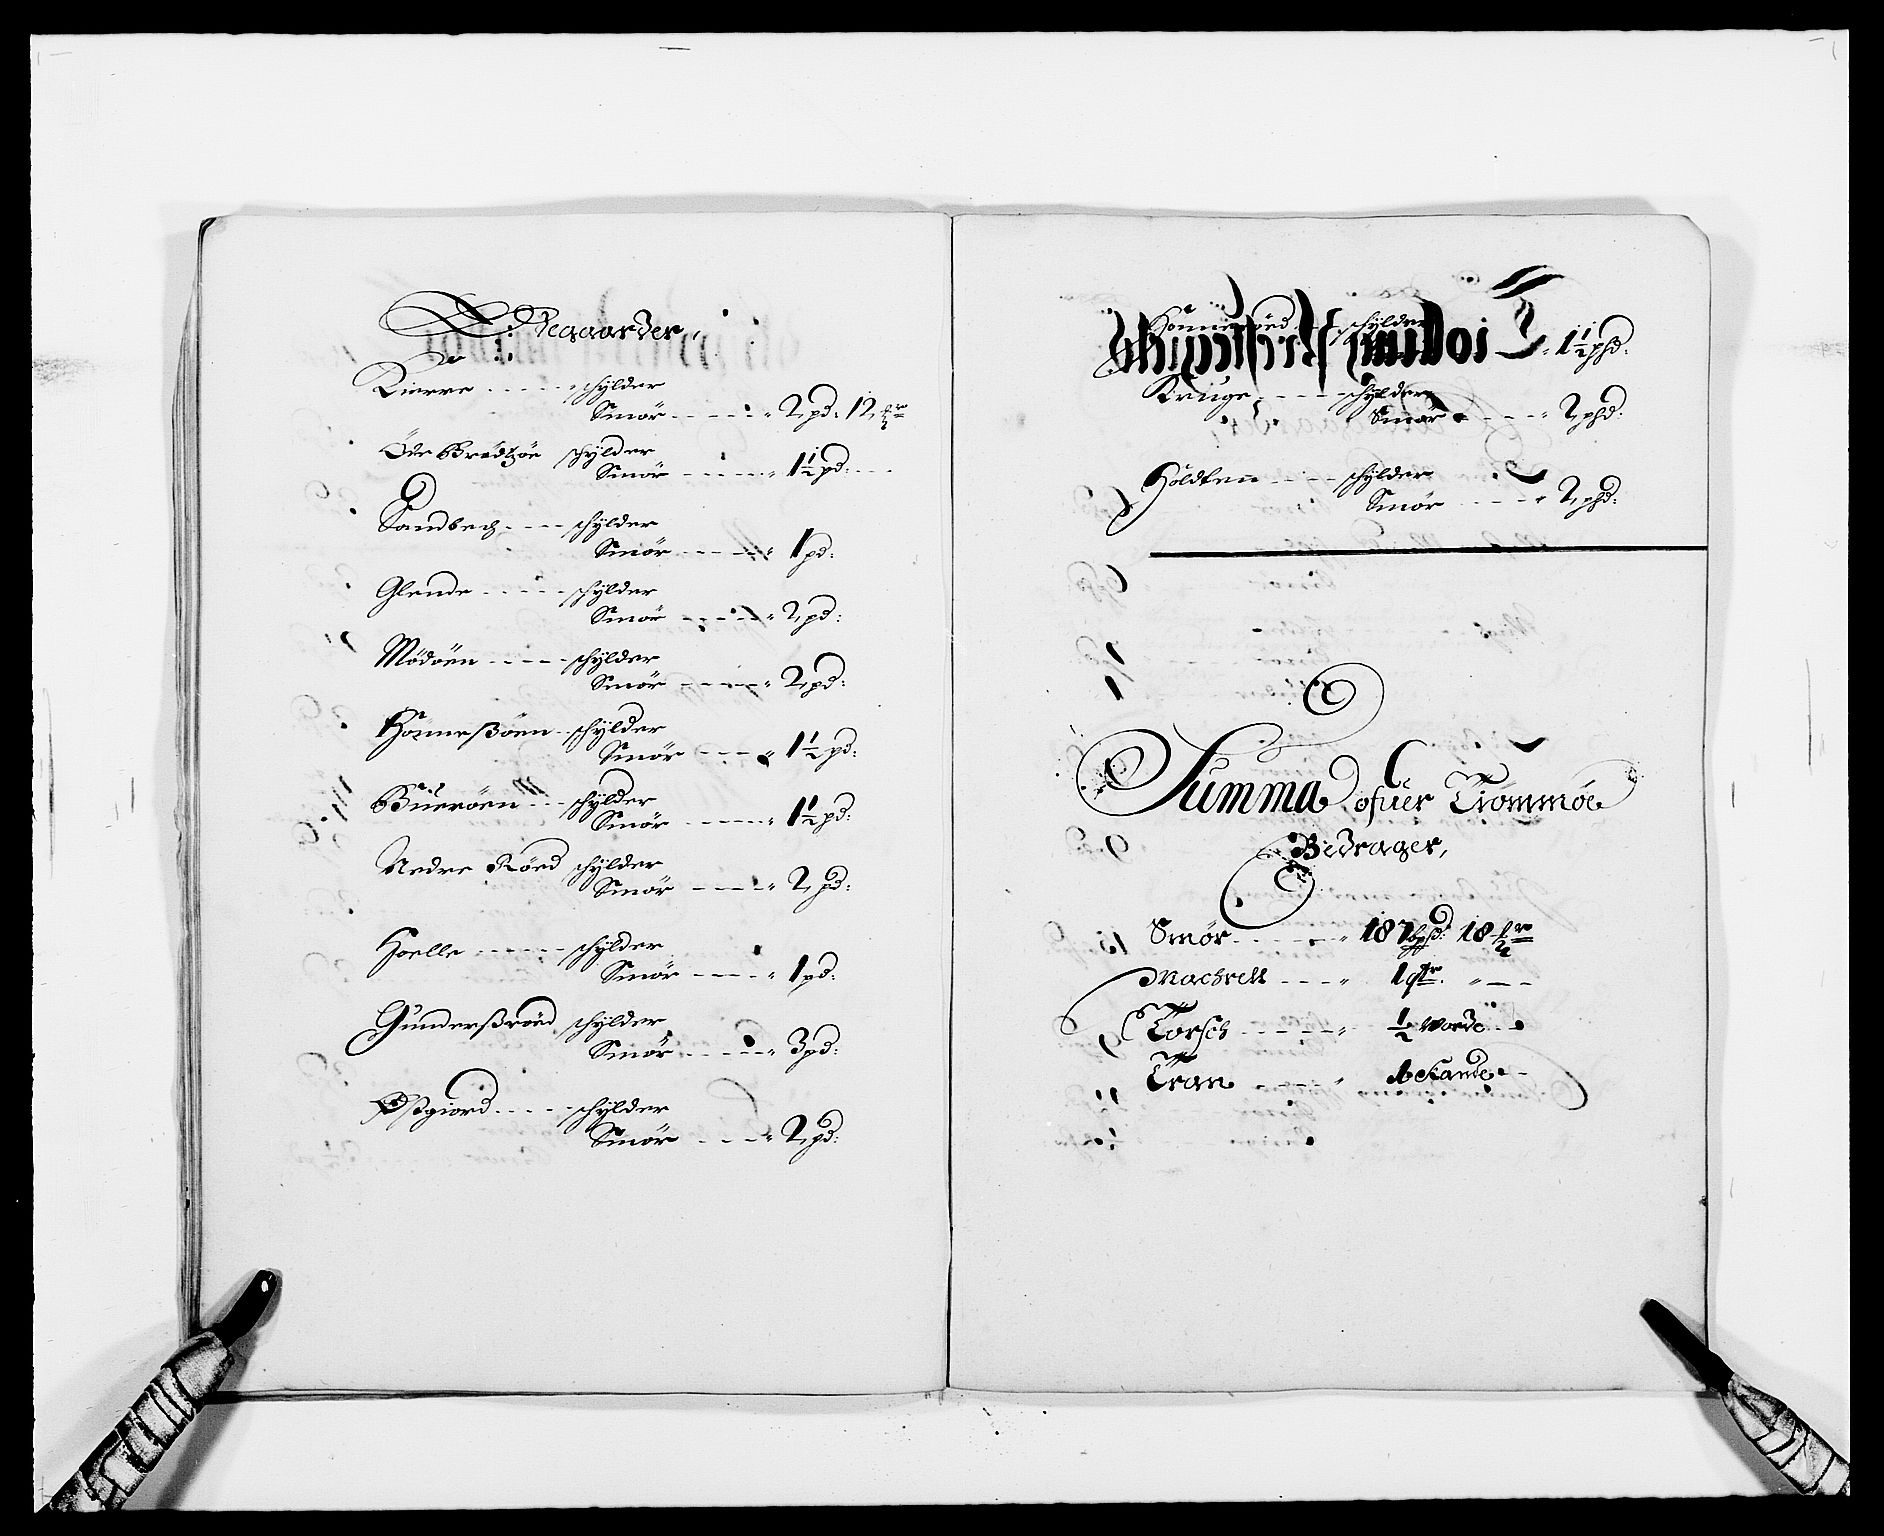 Ødegaarder,
Kierre - - - - - schylder
Smør - - - - 2 pd: 12 ℔r
Øde Brødtzøe schylder
Smør - - - - 1½ pd: - -
Sandbech - - - - schylder
Smør - - - - 1 pd:
Glende - - - - - schylder
Smør - - - - 2 pd:
Mödöen - - - - schylder
Smør - - - - 2 pd:
Hönneßöen - schylder
Smør - - - - 1½ pd:
Büeröen - - - schylder
Smør - - - - 1½ pd:
Nedre Röed schylder
Smør - - - - 2 pd:
Hoelle - - - - - schylder
Smør - - - - 1 pd:
Gunderßröed schylder
Smør - - - - 3 pd:
Østgiord - - - - schylder
Smør - - - - 2 pd:
schylder
1½ phd:
Kruge - - - - schylder
Smør - - - - 2 phd:
Holdtenn - - - schylder
Smør - - - - 2 phd:
Summa ofuer Trommøe
Bedrager,
Smør - - - - 187 bpd: 18 ℔r
Machrell - - - 1 qtr. - -
Torsch - - - - ½ Worde - -
Tran - - - - 1 Kande - -